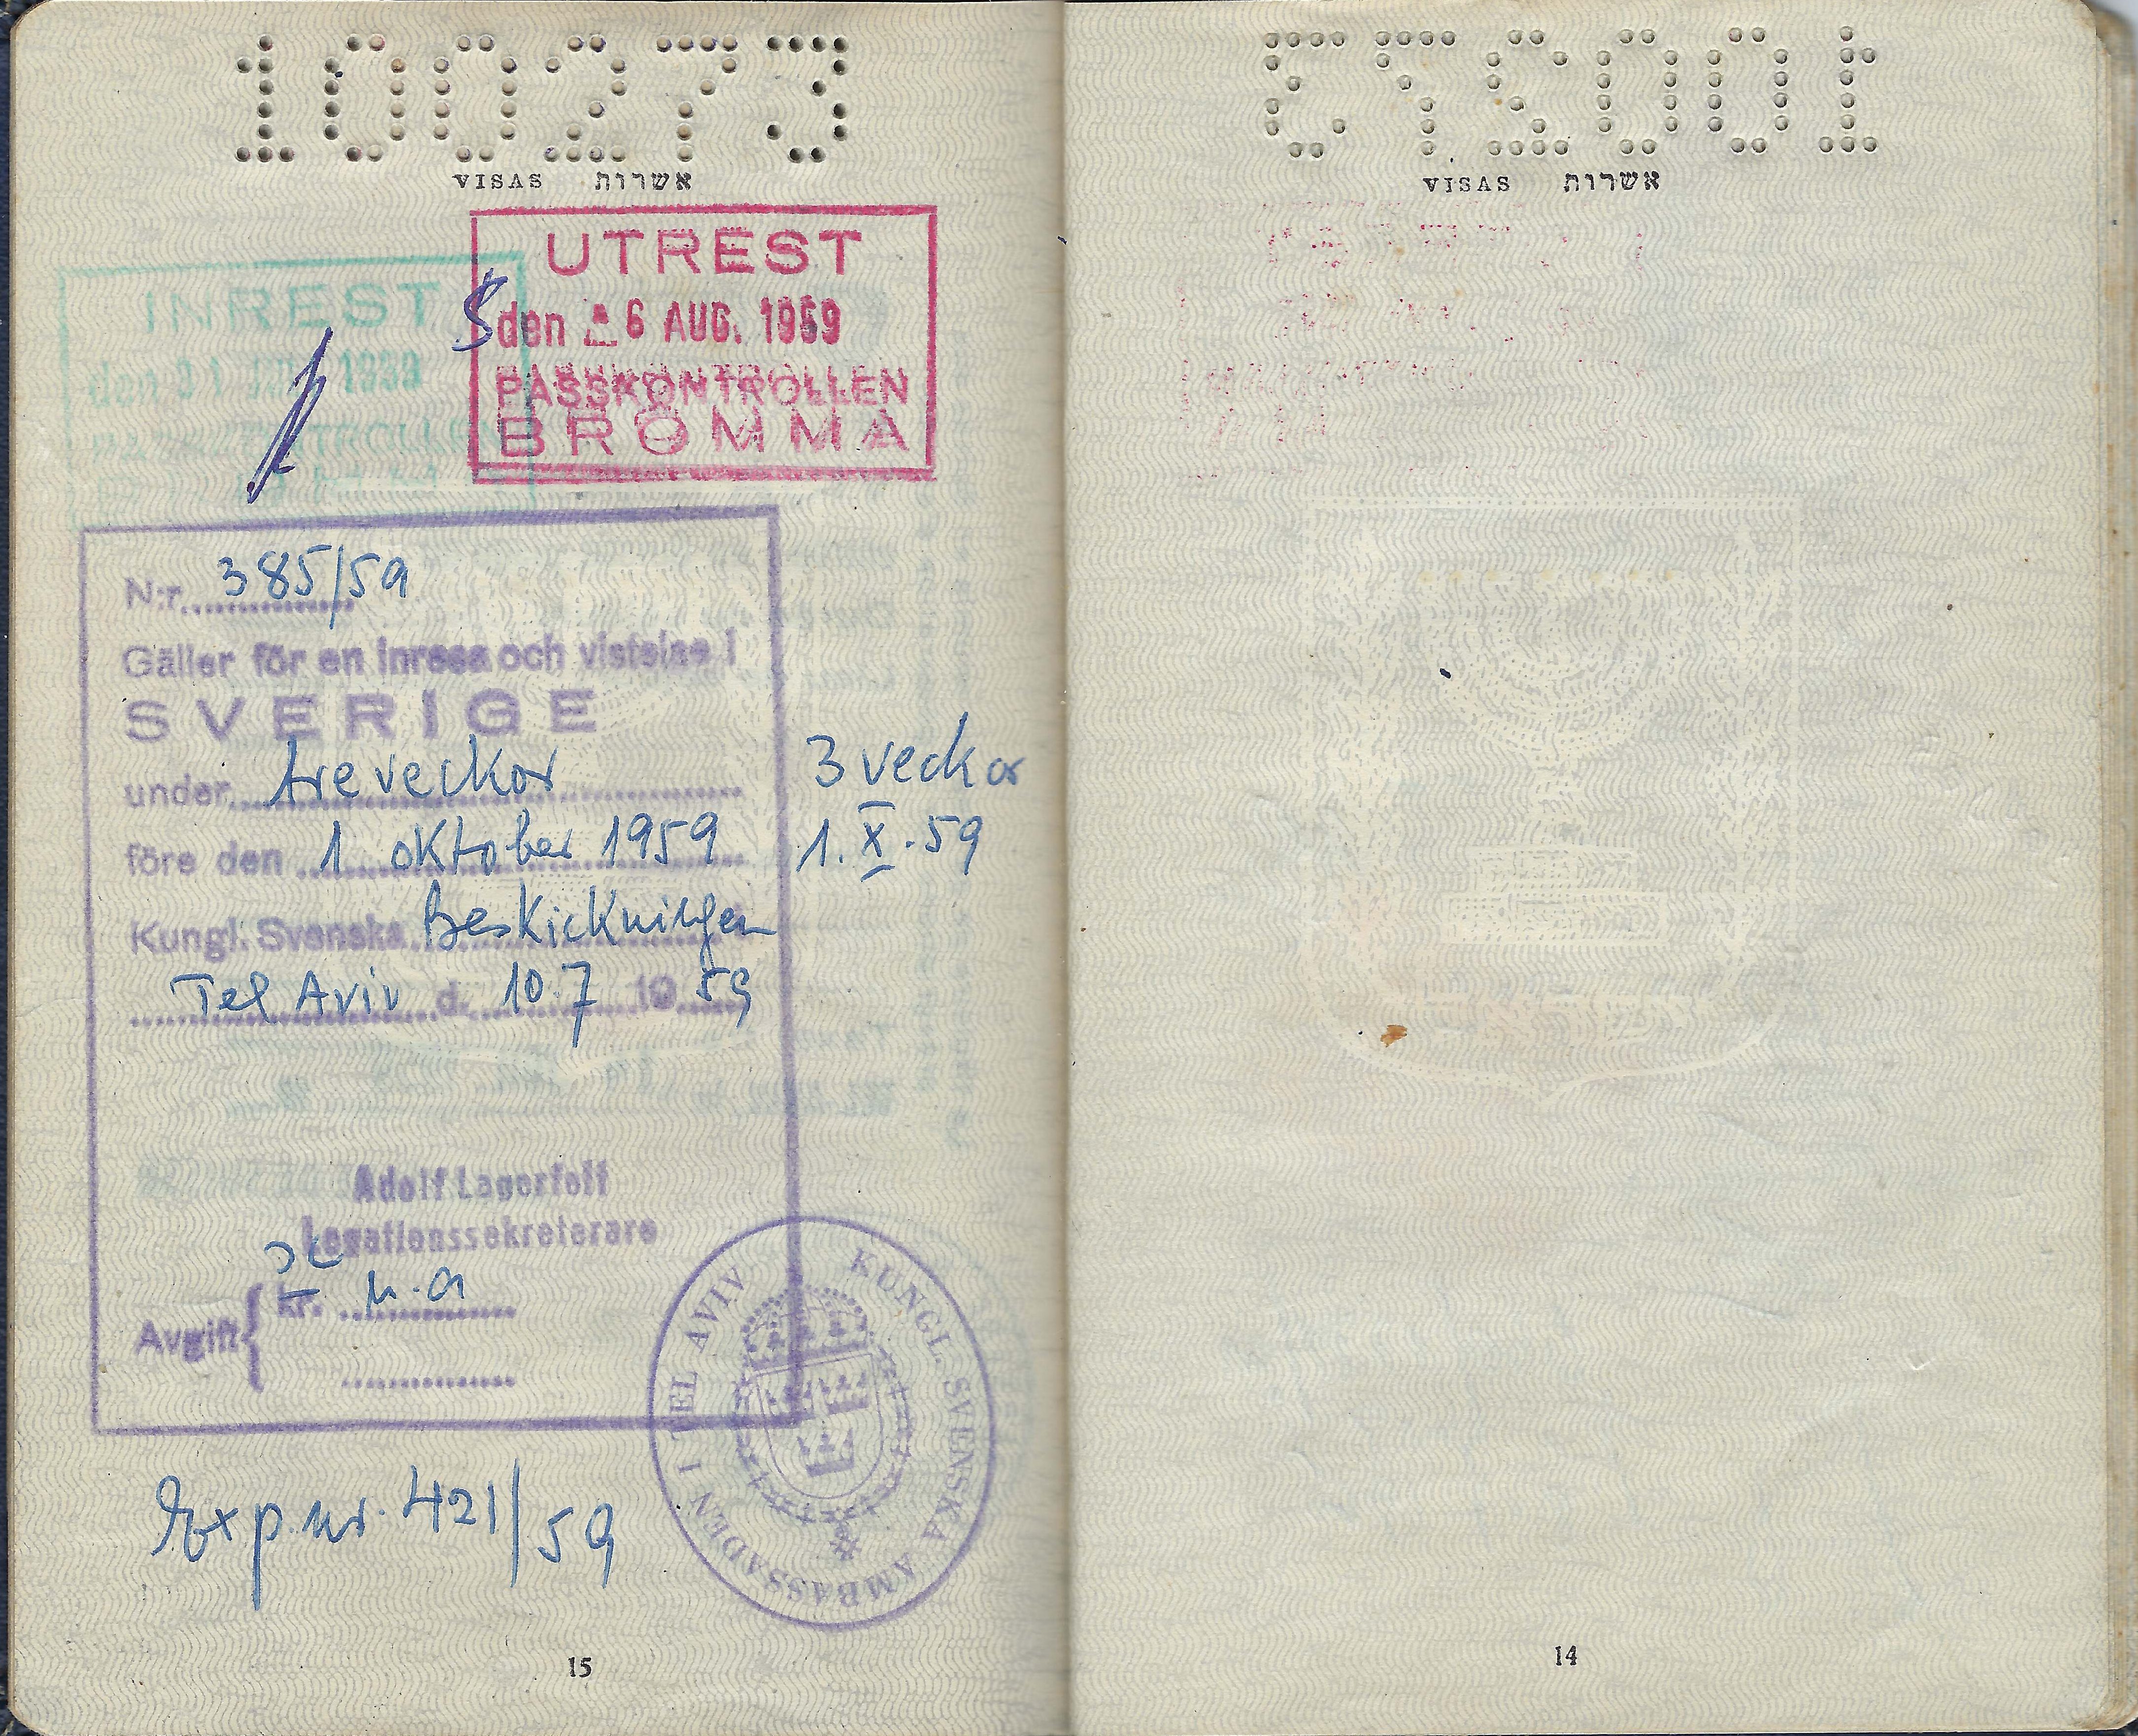 100273
VISAS אשרות
INREST
den 31 1959
PASSKONTROLLEN
UTREST
den 6 AUG. 1959
PASSKONTROLLEN
BROMMA
N:r 385/59
Gäller för en inresa och vistelse i
SVERIGE
under tre veckor 3 veckor
före den 1 oktober 1959 1.X.59
Kungl. Svenska Beskickningen
Tel Aviv d. 10.7 1959
Adolf Lagerfelt
Legationssekreterare
Avgift kr.
KUNGL. SVENSKA AMBASSADEN I TEL AVIV
Exp.nr. 421/59
15
100273
VISAS אשרות
14